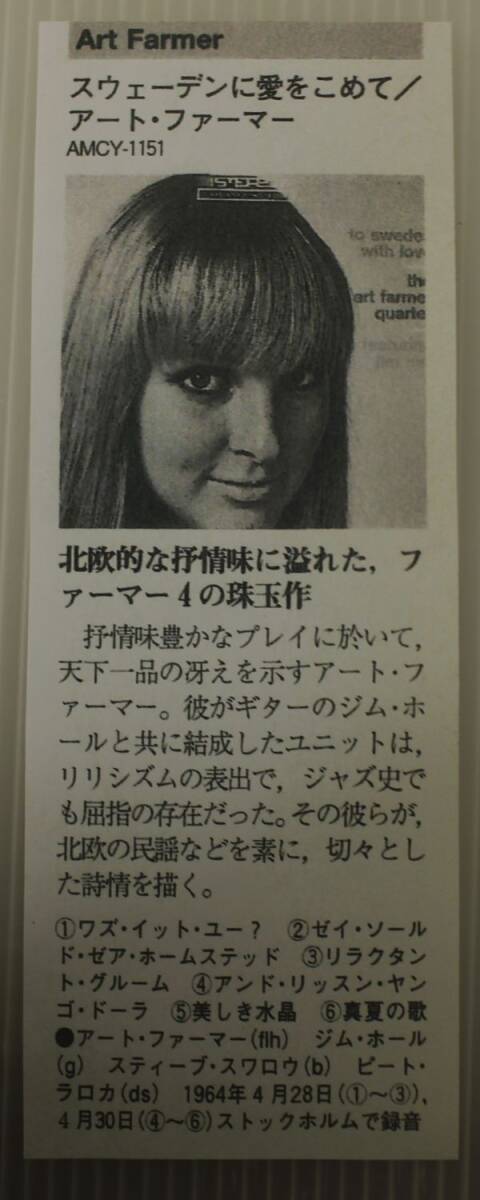 Art Farmer
スウェーデンに愛をこめて／
アート・ファーマー
AMCY-1151
to swede
with lov
the
art farme
quarte
北欧的な抒情味に溢れた，フ
ァーマー４の珠玉作
抒情味豊かなプレイに於いて，
天下一品の冴えを示すアート・フ
ァーマー。彼がギターのジム・ホ
ールと共に結成したユニットは，
リリシズムの表出で，ジャズ史で
も屈指の存在だった。その彼らが，
北欧の民謡などを素に，切々とし
た詩情を描く。
①ワズ・イット・ユー？　②ゼイ・ソール
ド・ゼア・ホームステッド　③リラクタン
ト・グルーム　④アンド・リッスン・ヤン
ゴ・ドーラ　⑤美しき水晶　⑥真夏の歌
●アート・ファーマー(flh)　ジム・ホール
(g)　スティーブ・スワロウ(b)　ピート・
ラロカ(ds)　1964年４月28日(①〜③)，
４月30日(④〜⑥)ストックホルムで録音